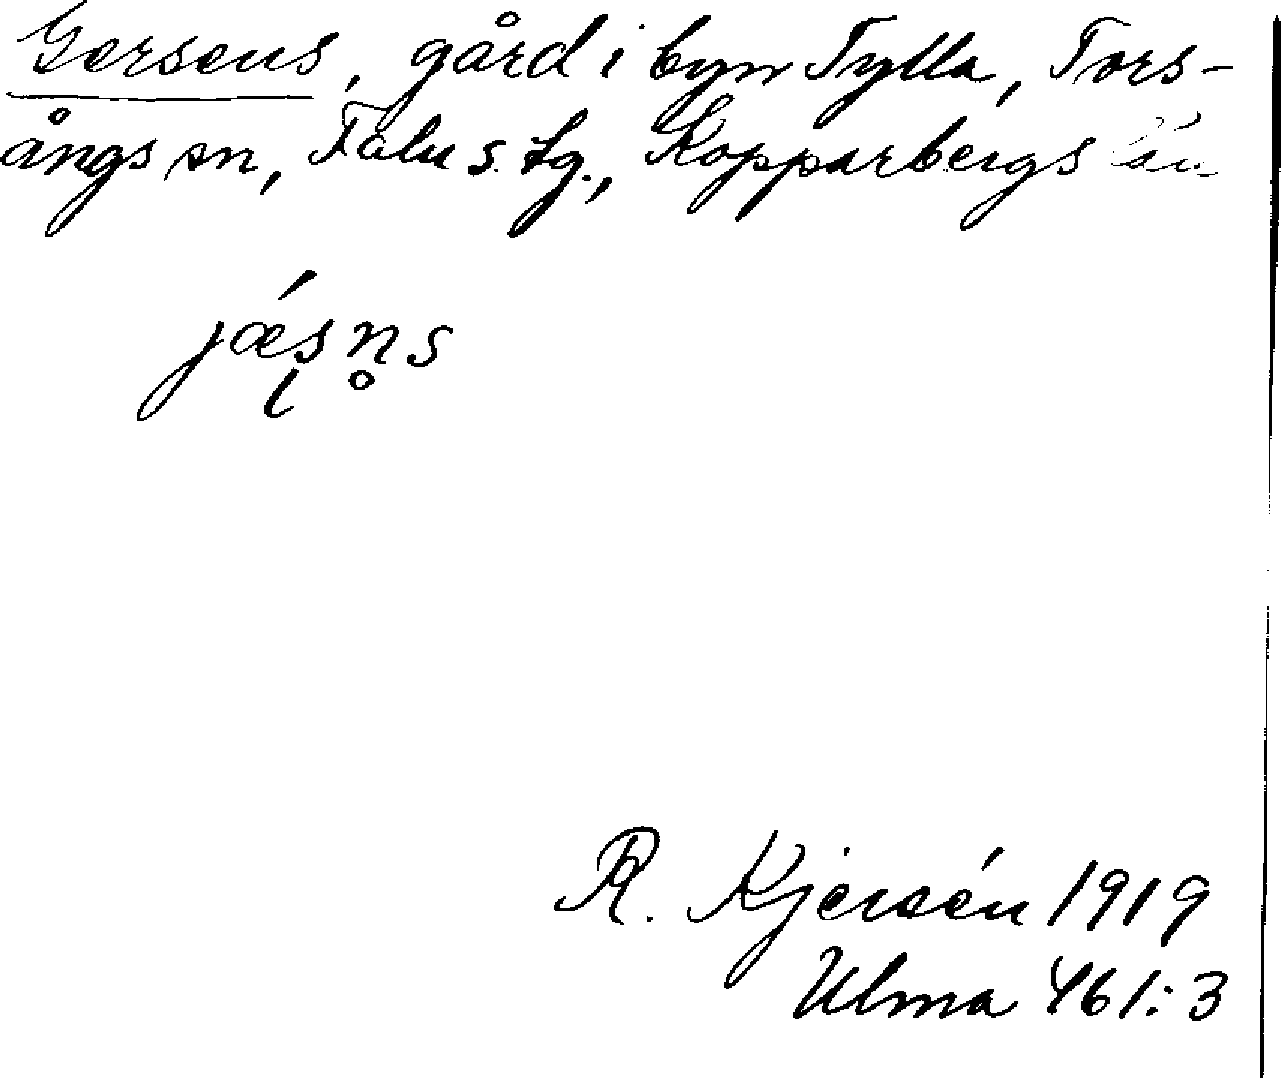 Gersens, gård i byn Tylla, Tors-
ångs sn, Falu s. tg., Kopparbergs län
jǽs̩n̥s
R. Kjersén 1919
Ulma 461:3